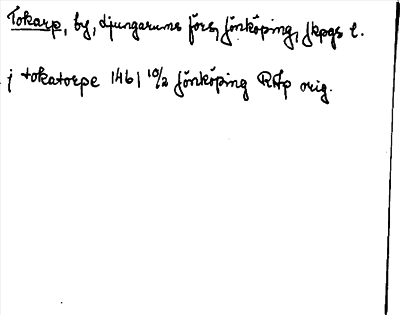 Tokarp, by, Ljungarums förs, Jönköping, Jkpgs l.
j tokatorpe 1461 10/2 Jönköping RAp orig.